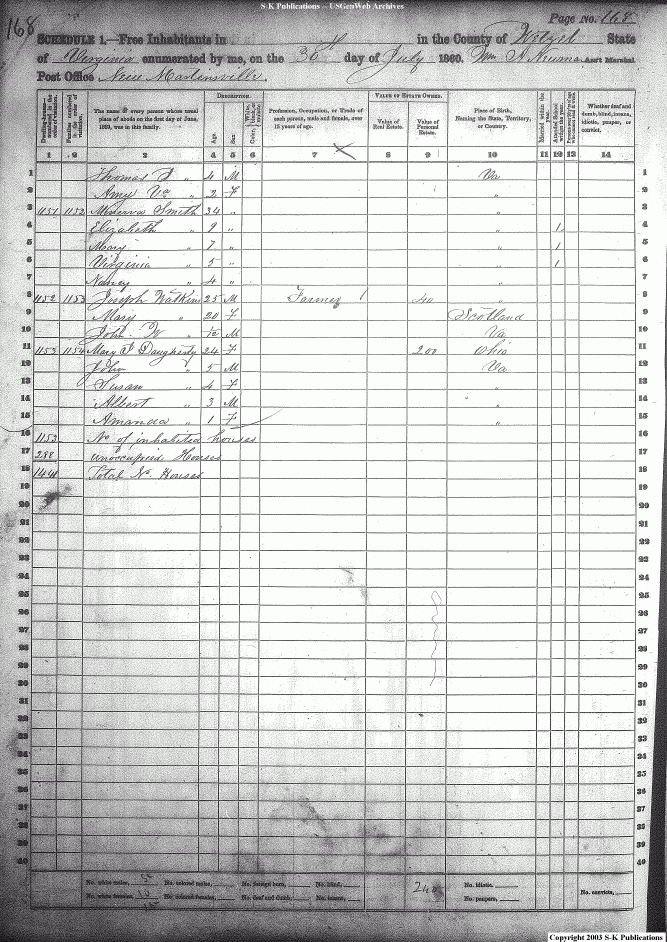 S K Publications -- USGenWeb Archives
168
Page No. 168
SCHEDULE 1.—Free Inhabitants in in the County of Wetzel State
of Virginia enumerated by me, on the 30th day of July 1860. Ass't Marshal
Post Office New Martinsville.
DESCRIPTION. VALUE OF ESTATE OWNED.
The name of every person whose usual place of abode on the first day of June, 1860, was in this family.
Age. Sex.
Profession, Occupation, or Trade of each person, male and female, over 15 years of age.
Value of Real Estate. Value of Personal Estate.
Place of Birth, Naming the State, Territory, or Country.
Married within the year. Attended School within the year.
Whether deaf and dumb, blind, insane, idiotic, pauper, or convict.
1 2 3 4 5 6 7 8 9 10 11 12 13 14
1 Thomas J " 4 M Va 1
2 Amy Va " 2 F " 2
3 1151 1152 Minerva Smith 34 " " 3
4 Elizabeth " 9 " " 1 4
5 Mary " 7 " " 1 5
6 Virginia " 5 " " 1 6
7 Nancy " 4 " " 7
8 1152 1153 Joseph Watkins 25 M Farmer 1 40 " 8
9 Mary " 20 F Scotland 9
10 John W " 1/12 M Va 10
11 1153 1154 Mary J Daugherty 24 F 200 Ohio 11
12 John " 5 M Va 12
13 Susan " 4 F " 13
14 Albert " 3 M " 14
15 Amanda " 1 F " 15
16 1153 No of inhabited houses 16
17 288 unoccupied Houses 17
18 1441 Total No. Houses 18
19 19
20 20
21 21
22 22
23 23
24 24
25 25
26 26
27 27
28 28
29 29
30 30
31 31
32 32
33 33
34 34
35 35
36 36
37 37
38 38
39 39
40 40
No. white males, 5 No. colored males, No. foreign born, No. blind, 240 No. idiotic,
No. white females, 10 No. colored females, No. deaf and dumb, No. insane, No. paupers, No. convicts,
Copyright 2003 S-K Publications